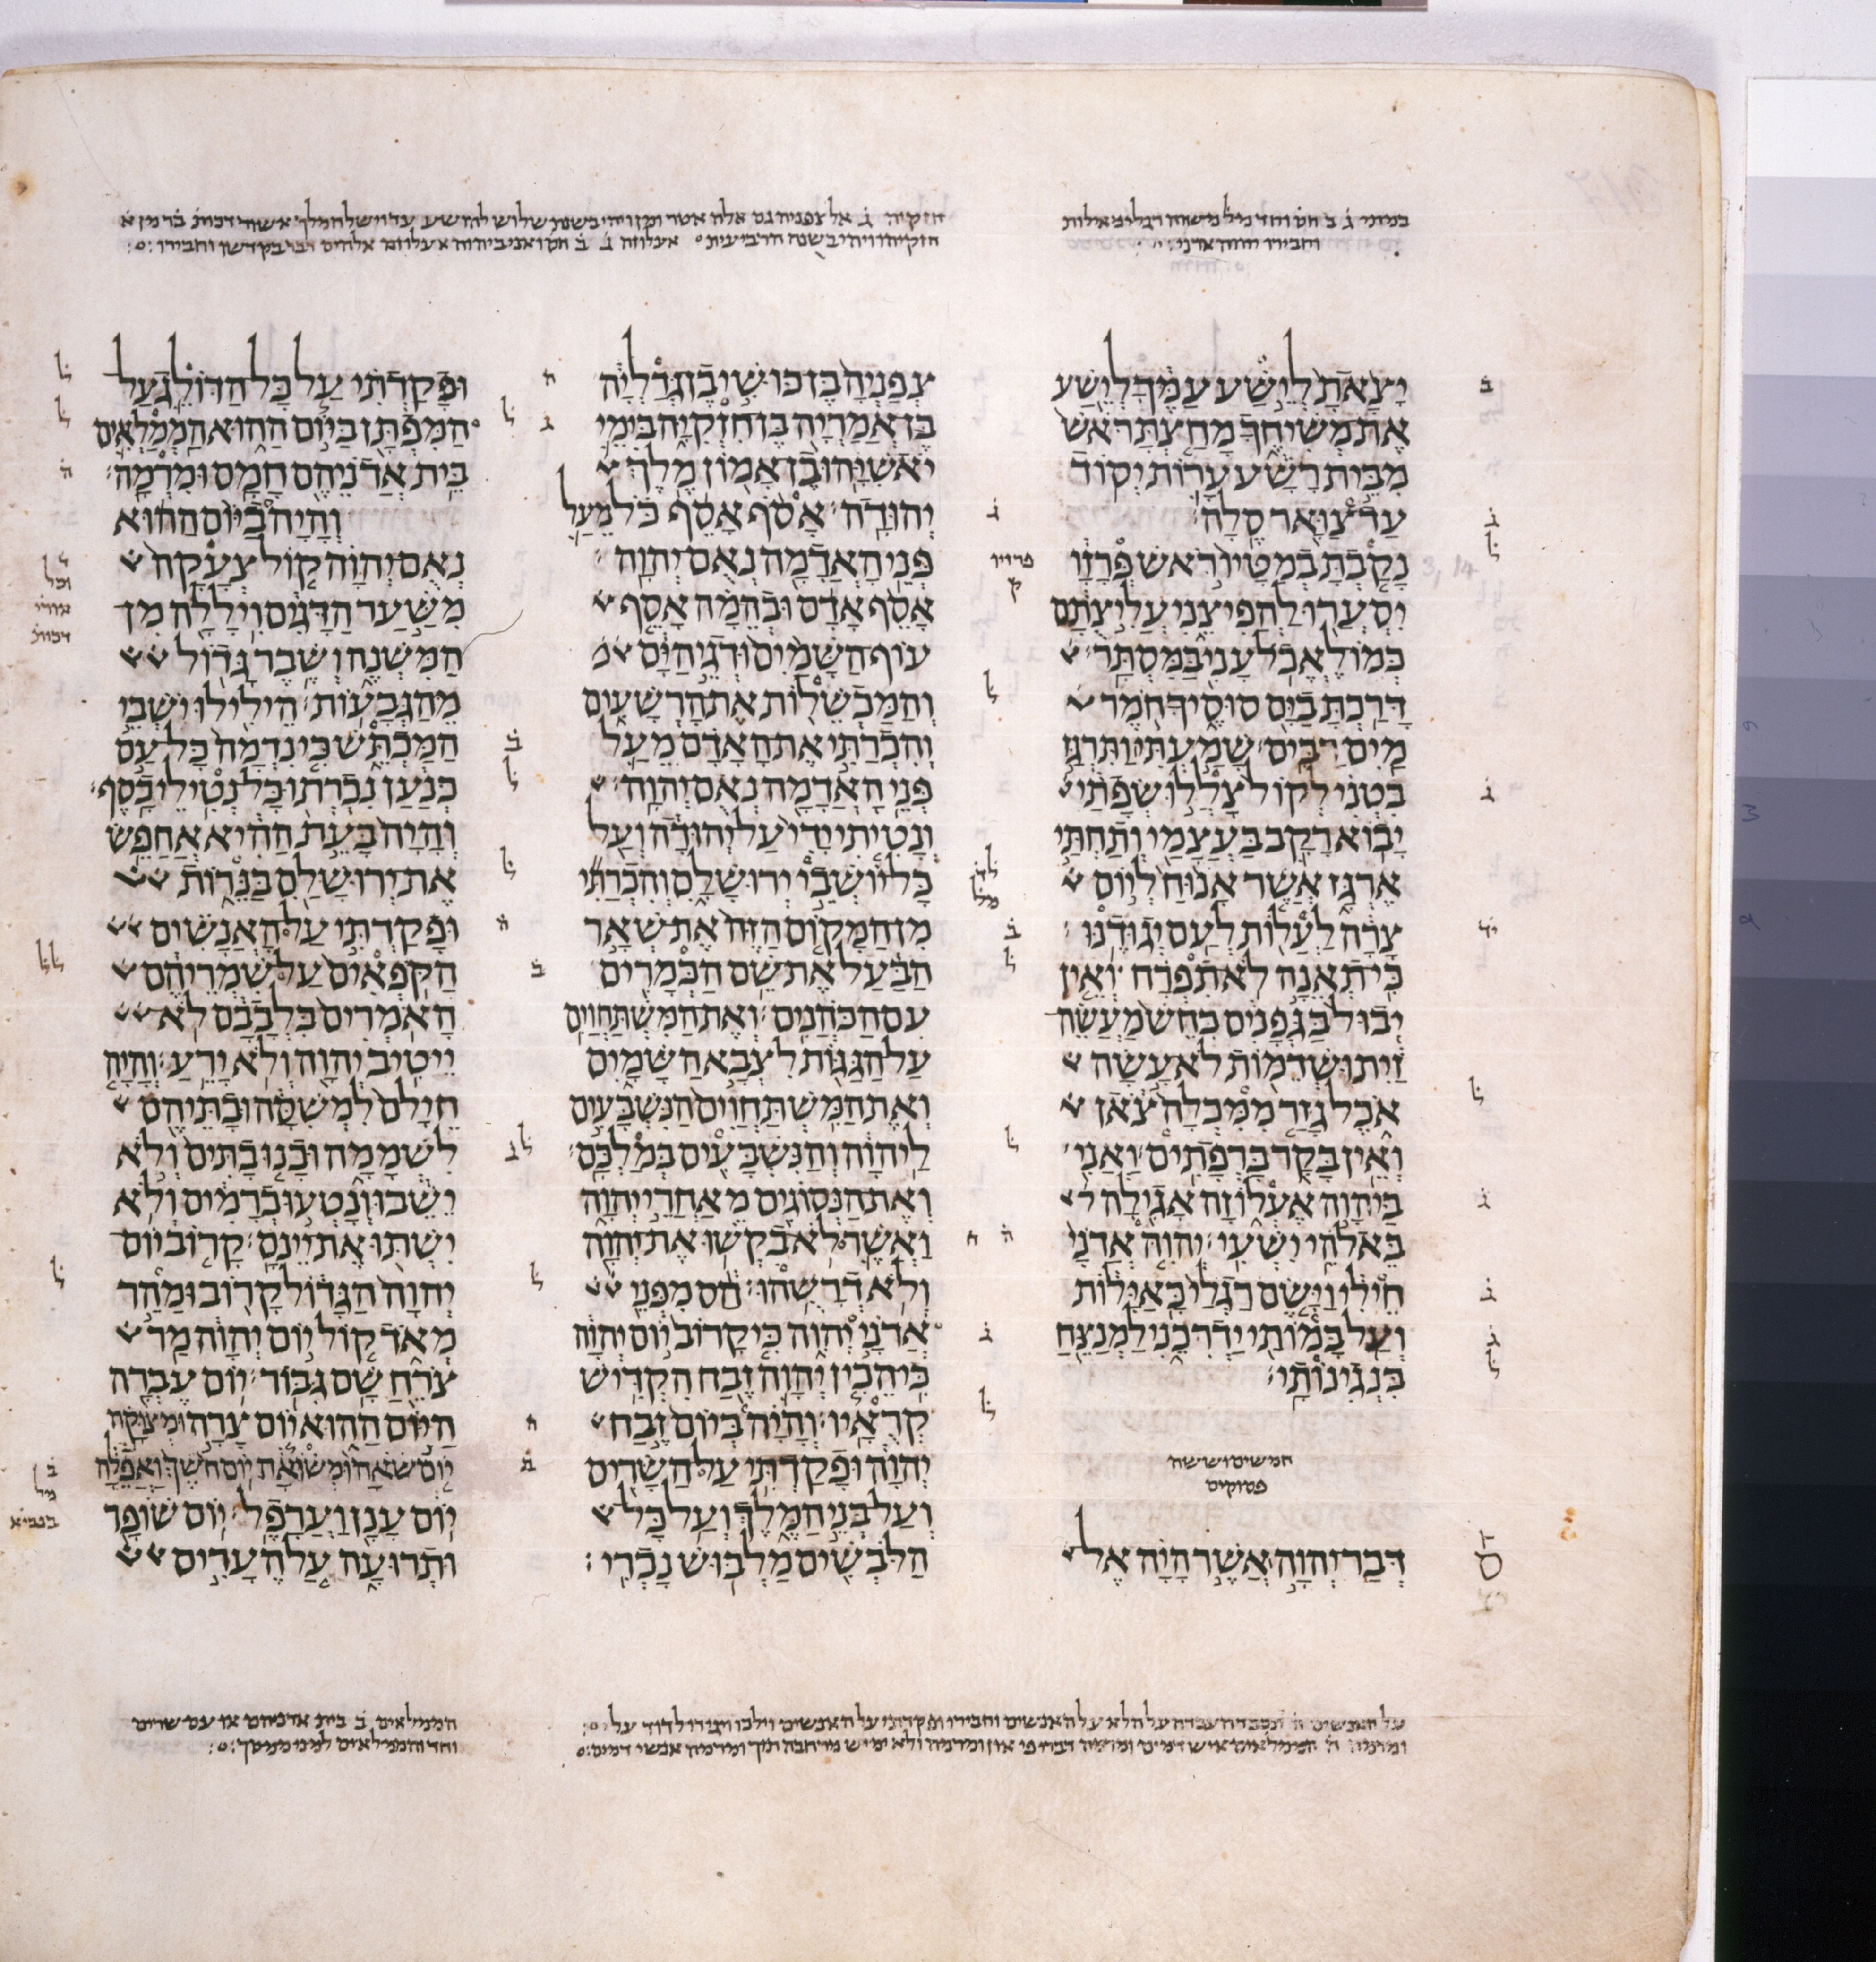 במותי ג ב חס וחד מל משוה רגלי כאילות
וחבירו יהוה אדני
יצאת לישע עמך לישע
את משיחך מחצת ראש
מבית רשע ערות יסוד
עד צואר סלה׃
נקבת במטיו ראש פרזו
יסערו להפיצני עליצתם
כמו לאכל עני במסתר׃
דרכת בים סוסיך חמר
מים רבים׃ שמעתי ותרגז
בטני לקול צללו שפתי
יבוא רקב בעצמי ותחתי
ארגז אשר אנוח ליום
צרה לעלות לעם יגודנו׃
כי תאנה לא תפרח ואין
יבול בגפנים כחש מעשה
זית ושדמות לא עשה
אכל גזר ממכלה צאן
ואין בקר ברפתים׃ ואני
ביהוה אעלוזה אגילה
באלהי ישעי׃ יהוה אדני
חילי וישם רגלי כאילות
ועל במותי ידרכני למנצח
בנגינותי׃
חמשים וששה
פסוקים
דבר יהוה אשר היה אל
צפניה בן כושי בן גדליה
בן אמריה בן חזקיה בימי
יאשיהו בן אמון מלך
יהודה׃ אסף אסף כל מעל
פני האדמה נאם יהוה׃
אסף אדם ובהמה אסף
עוף השמים ודגי הים
והמכשלות את הרשעים
והכרתי את האדם מעל
פני האדמה נאם יהוה׃
ונטיתי ידי על יהודה ועל
כל יושבי ירושלם והכרתי
מן המקום הזה את שאר
הבעל את שם הכמרים
עם הכהנים׃ ואת המשתחוים
על הגגות לצבא השמים
ואת המשתחוים הנשבעים
ליהוה והנשבעים במלכם׃
ואת הנסוגים מאחרי יהוה
ואשר לא בקשו את יהוה
ולא דרשהו׃ הס מפני
אדני יהוה כי קרוב יום יהוה
כי הכין יהוה זבח הקדיש
קראיו׃ והיה ביום זבח
יהוה ופקדתי על השרים
ועל בני המלך ועל כל
הלבשים מלבוש נכרי׃
ופקדתי על כל הדולג על
המפתן ביום ההוא הממלאים
בית אדניהם חמס ומרמה׃
והיה ביום ההוא
נאם יהוה קול צעקה
משער הדגים ויללה מן
המשנה ושבר גדול
מהגבעות׃ הילילו ישבי
המכתש כי נדמה כל עם
כנען נכרתו כל נטילי כסף׃
והיה בעת ההיא אחפש
את ירושלם בנרות
ופקדתי על האנשים
הקפאים על שמריהם
האמרים בלבבם לא
ייטיב יהוה ולא ירע׃ והיה
חילם למשסה ובתיהם
לשממה ובנו בתים ולא
ישבו ונטעו כרמים ולא
ישתו את יינם׃ קרוב יום
יהוה הגדול קרוב ומהר
מאד קול יום יהוה מר
צרח שם גבור׃ יום עברה
היום ההוא יום צרה ומצוקה
יום שאה ומשואה יום חשך ואפלה
יום ענן וערפל׃ יום שופר
ותרועה על הערים